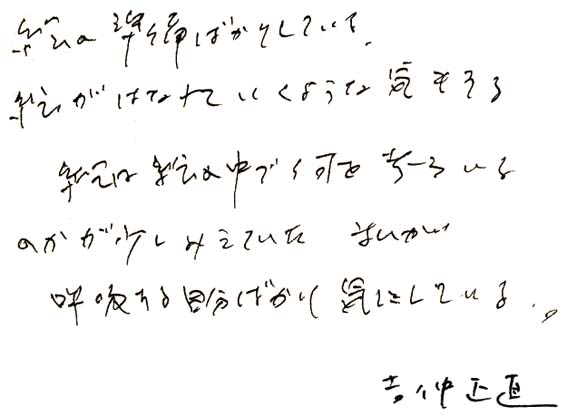 絵の準備ばかりしている。
絵がはなれていくような気もする
絵の中で何を考えている
のかが少しみえていた
呼吸する自分ばかり気にしている。
吉仲正直